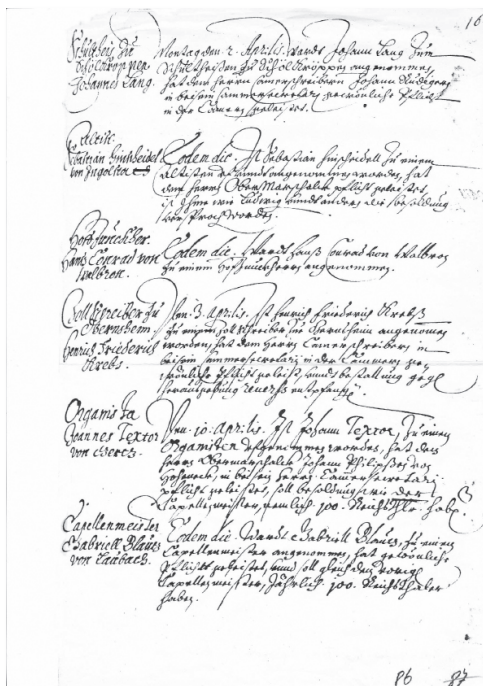 16
Schultheis zu
Johannes Lang.
Montag den 2. Aprilis. wardt Johann Lang zum
Schultheißen zu angenommen,
hat dem herrn Cammerschreibern Johann
in beisein Cammersecretarij gewönliche Pflicht
in der Cammer geleistet.
Altist.
Sebastian Hinscheidel
von Ingolstat
Eodem die. Ist Sebastian Hinscheidell zu einem
Altisten angenommen worden, hat
dem herrn OberMarschalck pflicht geleistet,
ist ihme wie Ludwig die besoldung
versprochen worden.
HoffJunckher.
Hans Conrad von
Walbron.
Eodem die. Wardt Hanß Conrad von Walbron
zu einem Hoffjunckhern angenommen.
Zollschreiber zu
Gernsheim.
Henrich Friederich
Krebs.
Den 3. Aprilis. Ist Henrich Friederich Krebß
zu einem zollschreiber zu Gernsheim angenommen
worden, hat dem herrn Cammerschreibern in
beisein Cammersecretarij in der Cammer
gewönliche Pflicht geleist, bestallung gegen
Organista
Joannes Textor
von
Den 10. Aprilis. Ist Johann Textor, zu einem
Organisten angenommen worden, hat dem
herrn Obermarschalck Johann Philipßen von
Hoheneck, in beisein herrn Cammersecretarij
pflicht geleistet, soll besoldung wie der
Capellmeister, nemlich 100. Reichsthlr. haben.
Capellenmeister
Gabriell Plautz
von Laubach.
Eodem die. Wardt Gabriell Plautz, zu einem
Capellenmeister angenommen, hat gewönliche
Pflicht geleistet, und soll gleich dem vorigen
Capellmeister, Jährlich 100. Reichsthaler
haben.
86 87